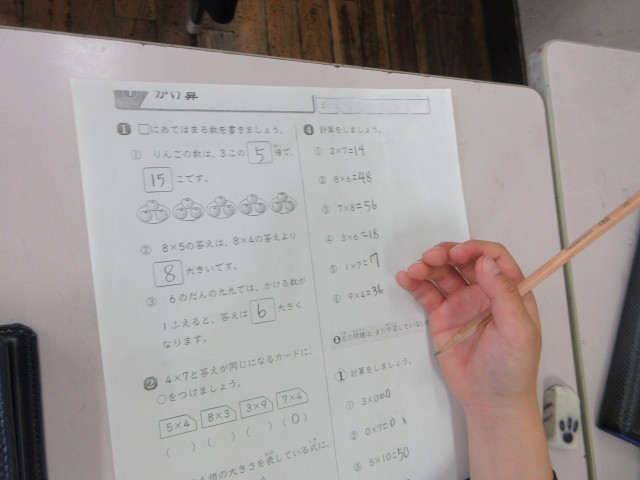 かけ算
1 □にあてはまる数を書きましょう。
① りんごの数は、3この 5 倍で、
15 こです。
② 8×5の答えは、8×4の答えより
8 大きいです。
③ 6のだんの九九では、かける数が
1ふえると、答えは 6 大きく
なります。
2 4×7と答えが同じになるカードに、
○をつけましょう。
5×4 8×3 3×9 7×4
( ) ( ) ( ) (○)
倍の大きさを表している式に、
4 計算をしましょう。
① 2×7=14
② 8×6=48
③ 7×8=56
④ 3×6=18
⑤ 1×7=7
⑥ 9×4=36
の問題は、まだ学習していない
1 計算をしましょう。
① 3×0=0
② 0×7=0
③ 5×10=50